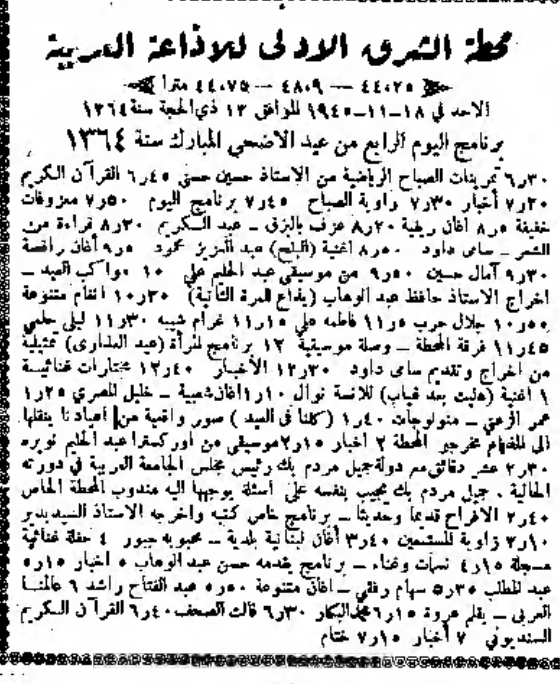 محطة الشرق الادنى للاذاعة العربية
٤٤،٢٥ — ٤٨،٩ — ٤٤،٧٥ مترا
الاحد في ١٨-١١-١٩٤٥ الموافق ١٣ ذي الحجة سنة ١٣٦٤
برنامج اليوم الرابع من عيد الاضحى المبارك سنة ١٣٦٤
٦٫٣٠ تمرينات الصباح الرياضية من الاستاذ حسين حسني ٦٫٤٥ القرآن الكريم
٧٫٢٠ أخبار ٧٫٣٠ زاوية الصباح ٧٫٤٥ برنامج اليوم ٧٫٥٠ معزوفات
خفيفة ٨٫٥ اغان ريفية ٨٫٢٠ عزف بالبزق ــ عبد الكريم ٨٫٣٠ قراءة من
الشعر ــ سامي داود ٨٫٥٠ اغنية (البلح) عبد العزيز محمود ٩٫٥ أغان راقصة
٩٫٣٠ آمال حسين ٩٫٥٠ من موسيقى عبد الحليم علي ١٠ مواكب العيد ــ
اخراج الاستاذ حافظ عبد الوهاب (يذاع للمرة الثانية) ١٠٫٣٠ انغام متنوعة
١٠٫٥٥ جلال حرب ١١٫٥ فاطمه علي ١١٫١٥ غرام شيبه ١١٫٣٠ ليلى حلمي
١١٫٤٥ فرقة المحطة ــ وصلة موسيقية ١٢ برنامج المرأة (عيد العذارى) تمثيلية
من اخراج وتقديم سامي داود ١٢٫٣٠ الأخبار ١٢٫٤٠ مختارات غنائية
١ اغنية (هلت بعد غياب) للآنسة نوال ١٫١٠ اغان شعبية ــ خليل المصري ١٫٢٥
عمر الزعني ــ منولوجات ١٫٤٠ (كلنا في العيد) صور واقعية من أعيادنا ينقلها
الى المذياع مخرجو المحطة ٢ أخبار ٢٫١٥ موسيقى من اوركسترا عبد الحليم نويره
٢٫٣٠ عشر دقائق مع دولة جميل مردم بك رئيس مجلس الجامعة العربية في دورته
الحالية . جميل مردم بك يجيب بنفسه على أسئلة يوجهها اليه مندوب المحطة الخاص
٢٫٤٠ الافراح قديما وحديثا ــ برنامج خاص كتبه واخرجه الاستاذ السيد بدير
٣٫١٠ زاوية المستمعين ٣٫٤٠ أغان لبنانية بلدية ــ محبوبه جبور ٤ حفلة غنائية
مسجلة ٤٫١٥ نسمات وغناء ــ برنامج يقدمه حسن عبد الوهاب ٥ اخبار ٥٫١٥
عبد المطلب ٥٫٣٥ سهام رفقي ــ اغان متنوعة ٥٫٥٠ عبد الفتاح راشد ٦ عالمنا
العربي ــ بقلم عروة ٦٫١٥ محمد البكار ٦٫٣٠ قالت الصحف ٦٫٤٠ القرآن الكريم
السنديوني ٧ أخبار ٧٫١٥ ختام